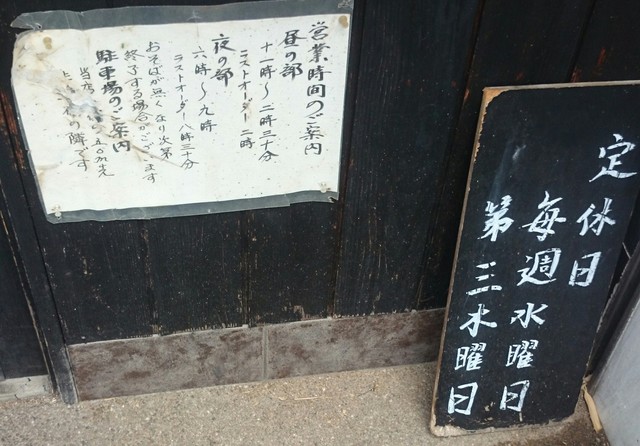 営業時間のご案内
昼の部
十一時〜二時三十分
ラストオーダー 二時
夜の部
六時〜九時
ラストオーダー八時三十分
おそばが無くなり次第
終了する場合がございます
駐車場のご案内
当店
の隣です
定休日
毎週水曜日
第三木曜日